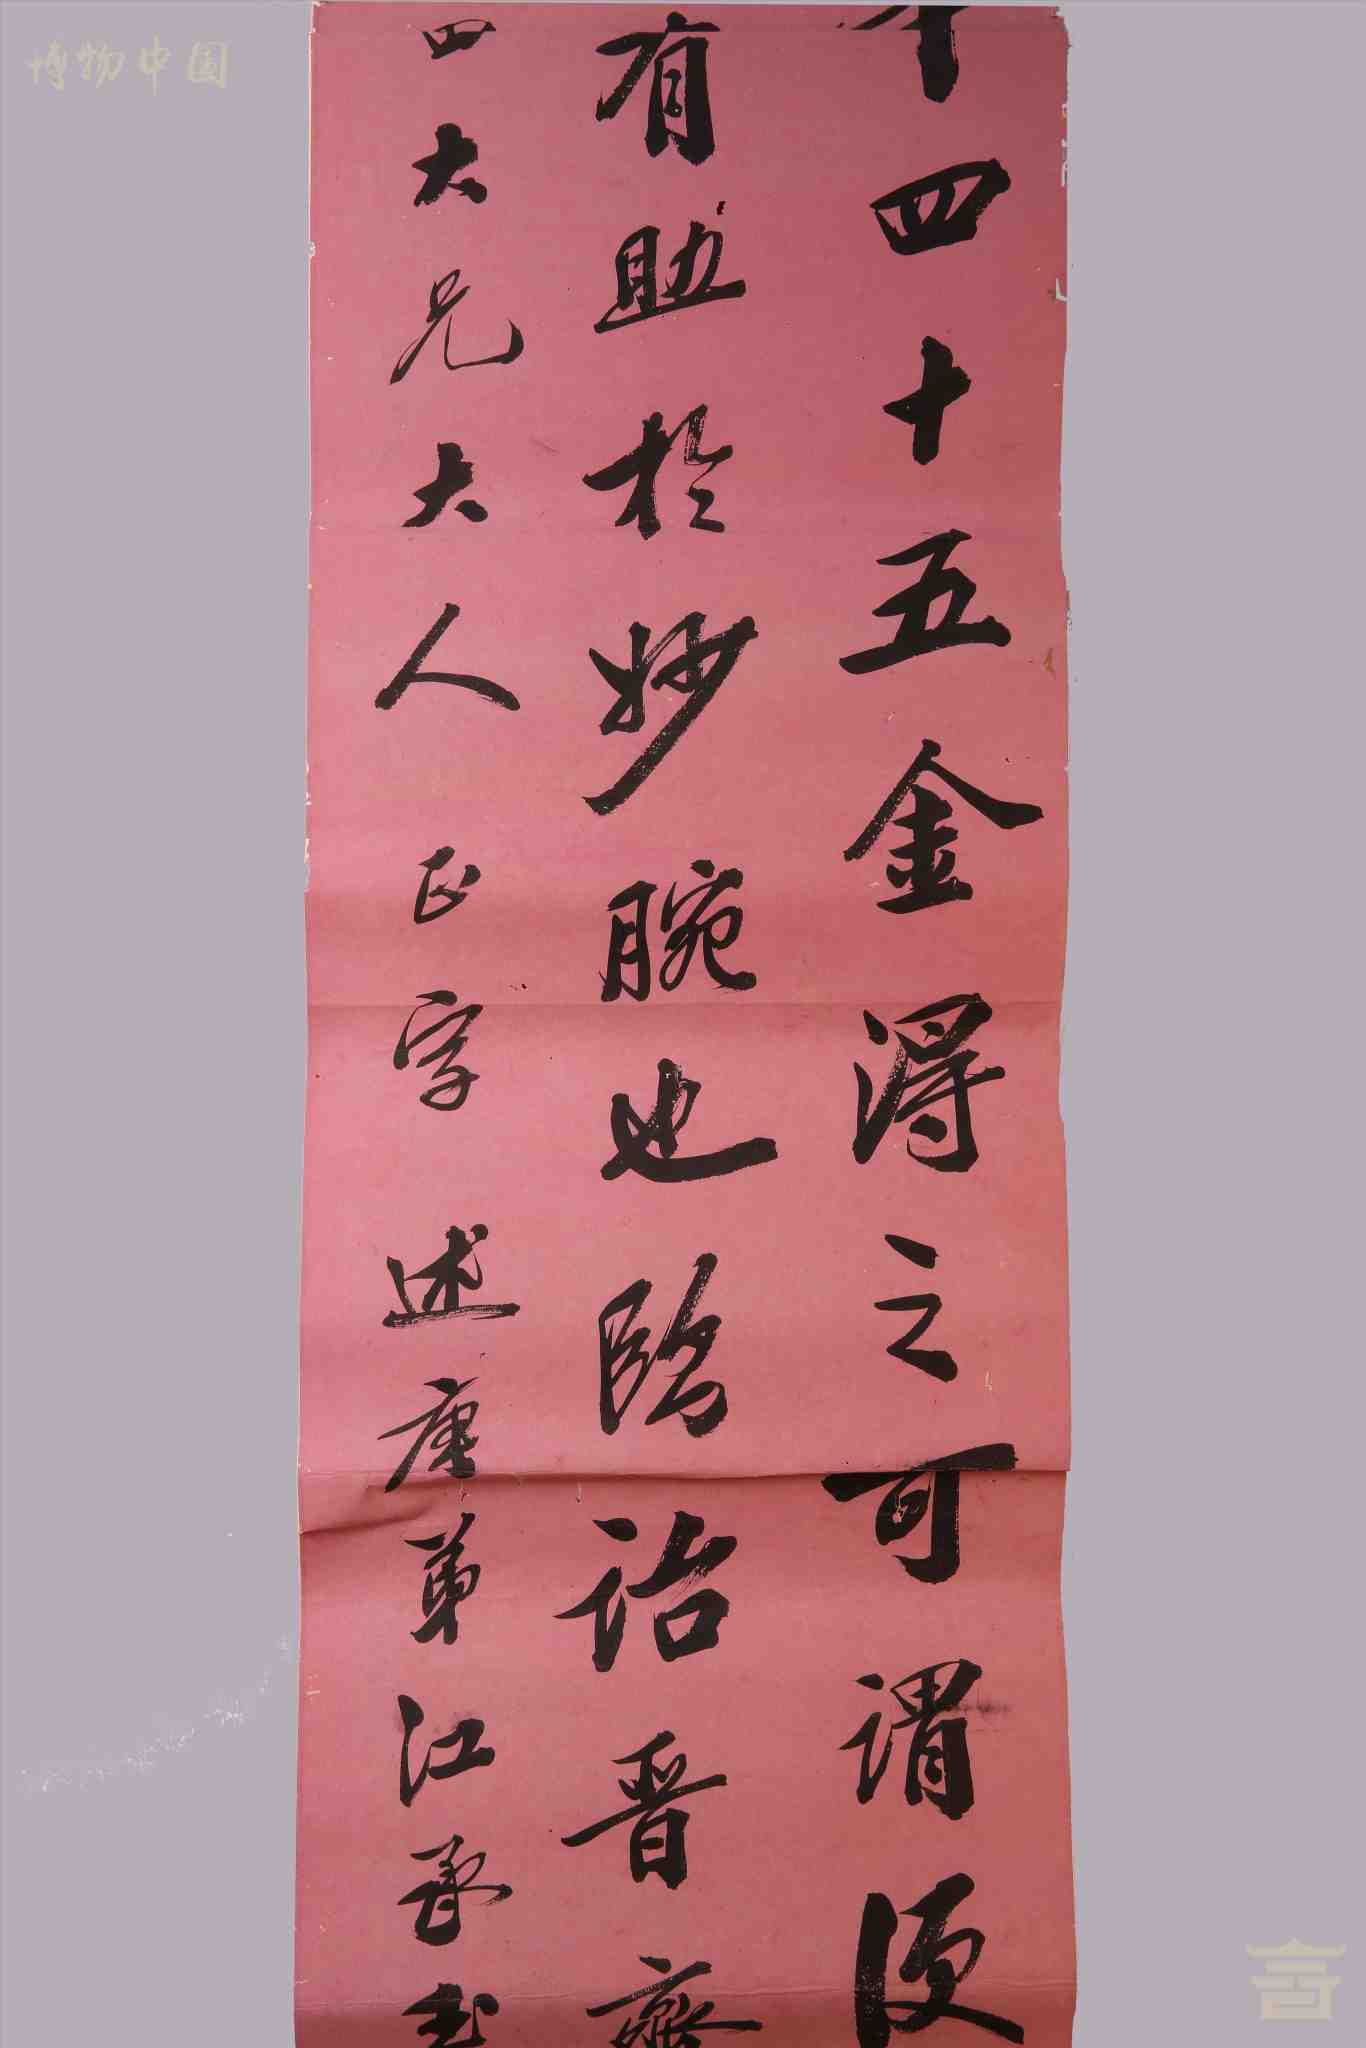 四十五金得之可謂便
有助於妙腕也臨詒晉齋
四大兄大人正字 述唐弟江承書
博物中国